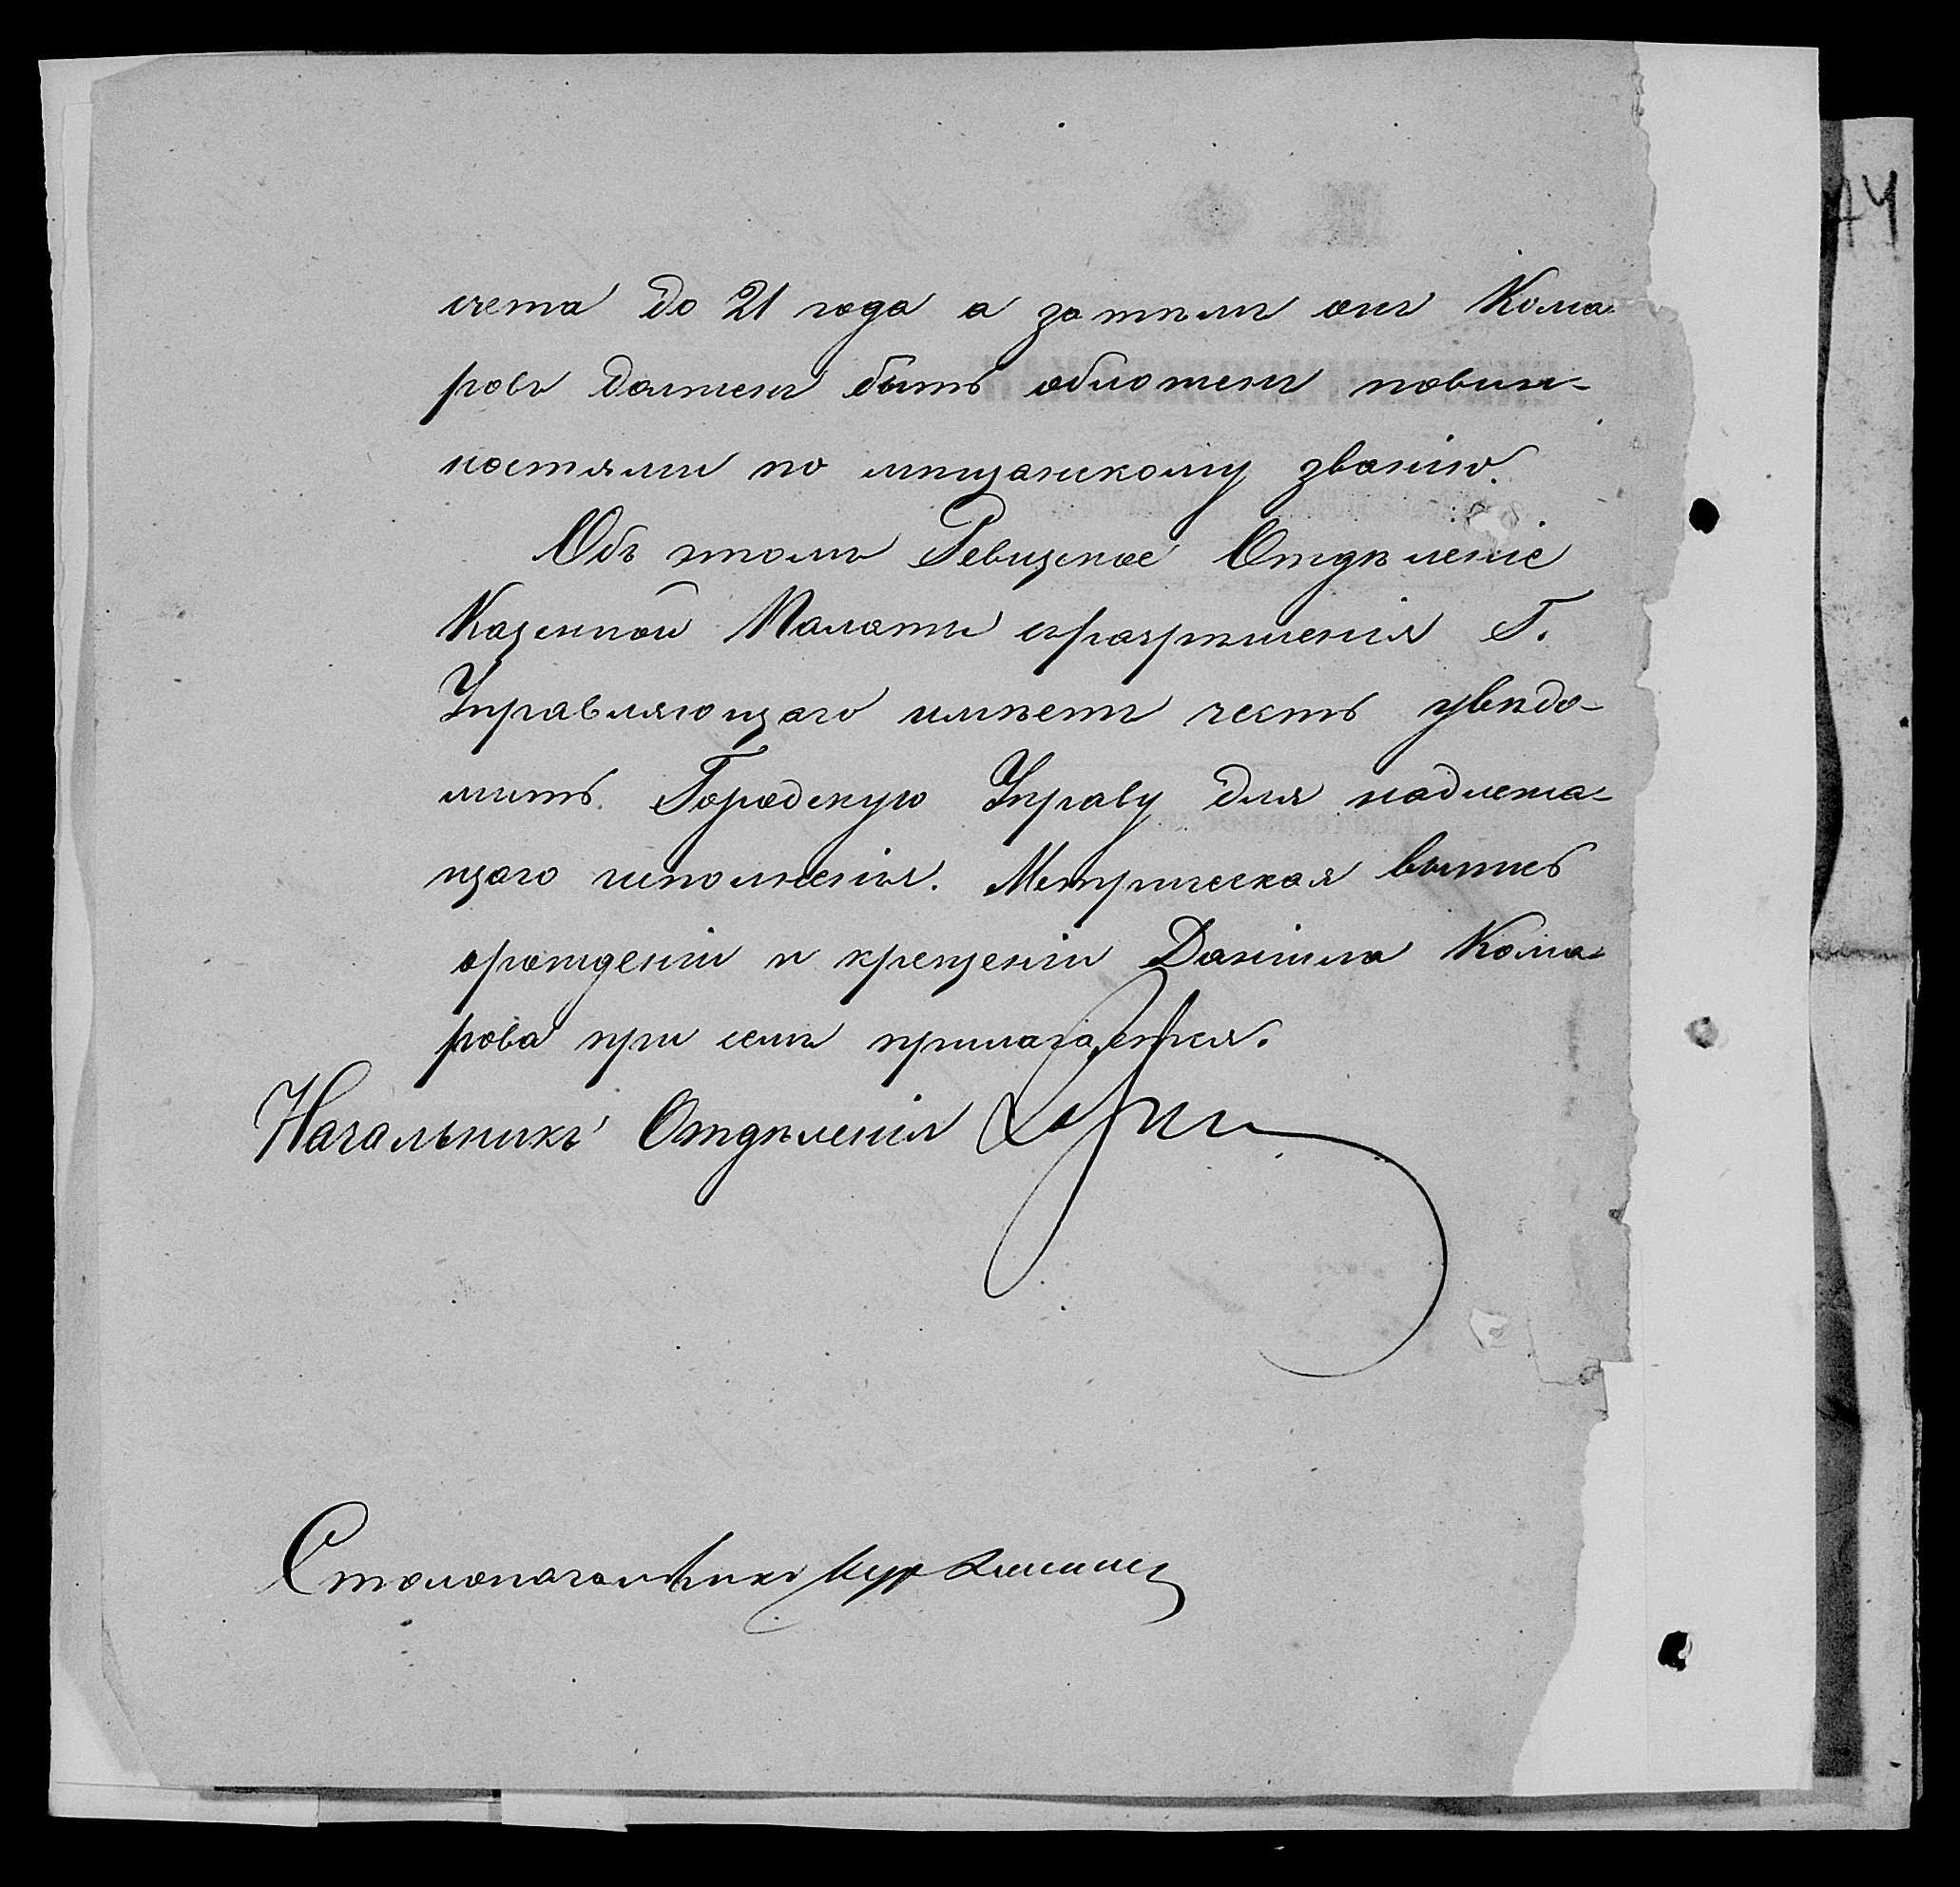 счета до 21 года а затѣмъ онъ Кома-
ровъ долженъ быть обложенъ повин-
ностями по мѣщанскому званію.
Объ этомъ Ревизское Отдѣленіе
Казенной Палаты съразрѣшенія Г.
Управляющаго имѣетъ честь увѣдо-
мить Городскую Управу для надлежа-
щаго исполненія. Метрическая выпись
орожденіи и крещеніи Даніила Кома-
рова при семъ прилагается.
Начальникъ Отдѣленія
Столоначальникъ